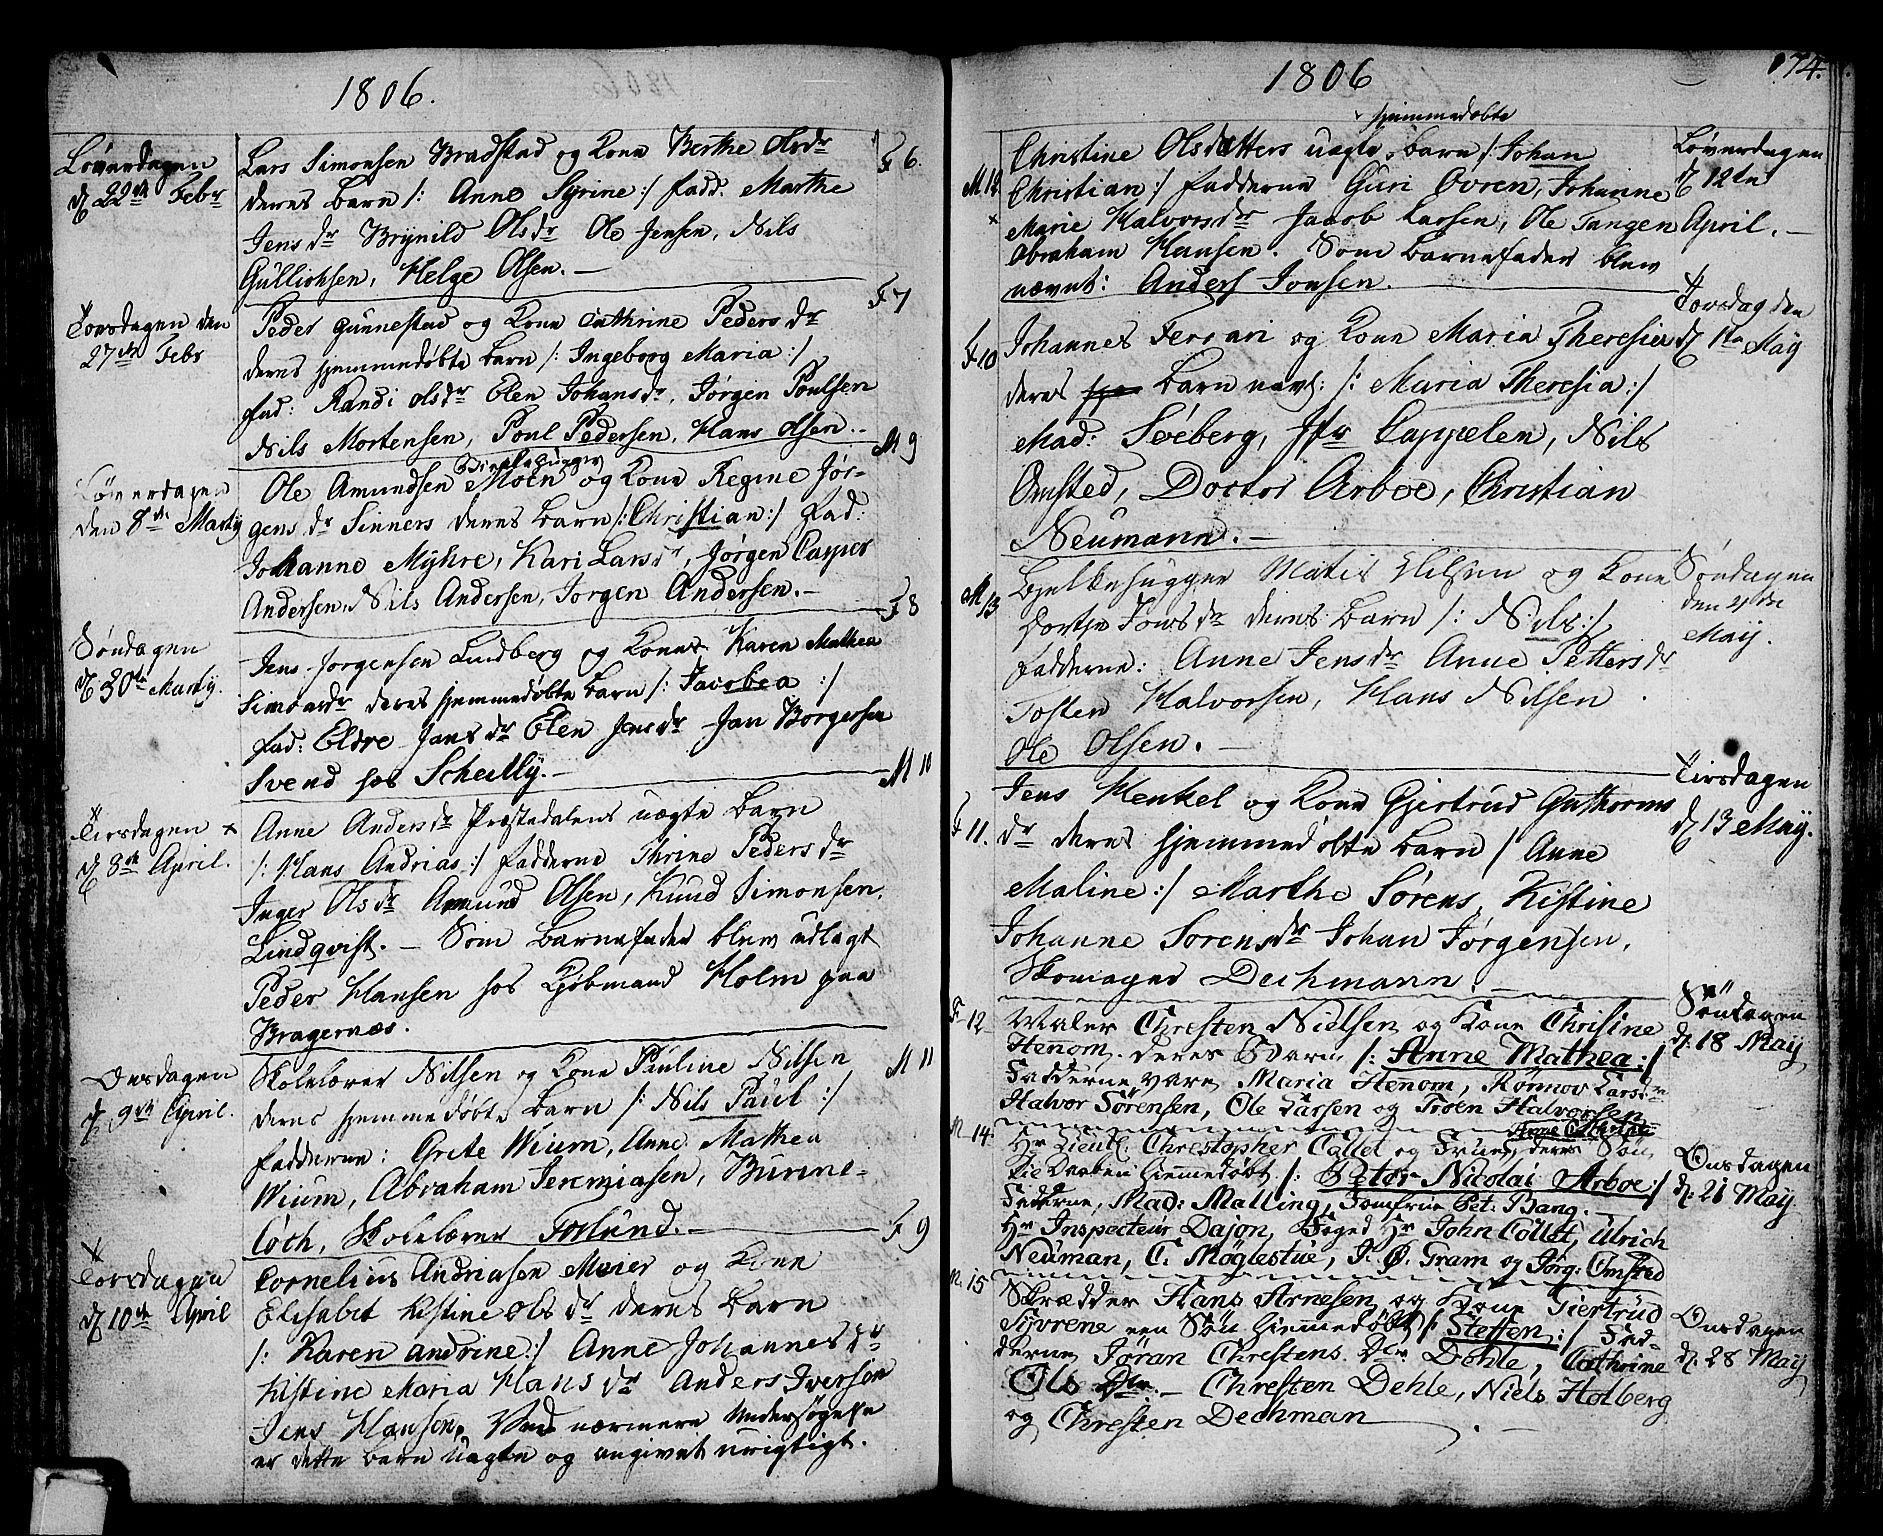 1806.
Løverdagen
d 22de Febr
Lars Simonsen Bradstad og Kone Berthe Olsdr
F 6
deres Barn /: Anne Syrine :/ fadd: Marthe
Jensdr Brynild Olsdr Ole Jensen, Nils
Gullichsen, Helge Olsen. —
Torsdagen den
27de Febr
Peder Gunnestad og Kone Cathrine Pedersdr
F 7
deres hjemmedøbte Barn /: Ingeborg Maria :/
fad: Randi Olsdr Elen Johansdr, Jørgen Poulsen
Nils Mortensen, Poul Pedersen, Hans Olsen. -
Løverdagen
den 8de Martij
Ole Amundsen Moen og Kone Regine Jør-
M 9
gensdr Sinners deres Barn /: Christian :/ Fad:
Johanne Myhre, Kari Larsdr, Jørgen Casper
Andersen, Nils Andersen, Jørgen Andersen. -
Søndagen
d 30te Martij.
Jens Jorgensen Lindberg og Kone Karen Mathea
F 8
Simonsdr deres hjemmedøbte Barn /: Jacobea :/
fad: Eldre Jansdr Elen Jensdr Jan Borgersen
Svend hos Scheelly. -
Tirsdagen
d 8de April.
Anne Andersdr Præstedalens uægte Barn
M 10
/: Hans Andrias :/ fadderne Thrine Pedersdr
Inger Olsdr Amund Olsen, Knud Simonsen,
Lindqvist. - Som Barnefader blev udlagt
Peder Hansen hos Kjøbmand Holm paa
Bragernæs.
Onsdagen
d 9de April.
Skolelærer Nilsen og Kone Pauline Nilsen
M 11
deres hjemmedøbte Barn /: Nils Paul :/
fadderne: Grete Wium, Anne Mathea
Wium, Abraham Jeremiasen,
Coch, Skolelærer Forlund. -
Torsdagen
d 10de April
Cornelius Andriasen Meier og Kone
F 9
Elisabet Kistine Olsdr deres Barn
/: Karen Andrine :/ Anne Johannesdr
Kistine Maria Hansdr Anders Iversen
Jens Hansen, Ved nærmere Undersøgelse
er dette Barn uægte og angivet urigtigt.
1806
174.
hjemmedøbte
M 12
Christine Olsdatters uægte Barn /: Johan
Løverdagen
d 12te
April. -
Christian :/ Fadderne Guri Ovren, Johanne
Marie Halvorsdr Jacob Larsen, Ole Tangen
Abraham Hansen. Som Barnefader blev
nævnt: Anders Jonsen.
F 10
Johannes Ferrari og Kone Maria Theresia
Torsdag den
d 1te May
deres Barn navl: /: Maria Theresia :/
Mad: Søeberg, Jfr Cappelen, Nils
Omsted, Doctor Arboe, Christian
Neumann. -
M 13
Bjelkehugger Matis Nilsen og Kone
Søndagen
den
Maij.
Dorthe Jonsdr deres Barn /: Nils :/
Fadderne: Anne Jensdr Anne Pettersdr
Tosten Halvorsen, Hans Nilsen
Ole Olsen. -
F 11.
Jens Henkel og Kone Gjertrud Guthorms
Tirsdagen
d 13 May.
dr deres hjemmedøbte Barn /: Anne
Maline :/ Marthe Sørens, Kistine
Johanne Sorensdr Johan Jørgensen,
Skomager Dechmann. -
F 12
Maler Chresten Nielsen og Kone Chrisine
Søndagen
d. 18 May
Henom. deres Barn /: Anne Mathea :/
Fadderne vare Maria Henom, Rønnov Larsdr
Halvor Sørensen, Ole Larsen og Troen Halvorsen
M. 14.
Hr Lieut. Christopher Collet og Frue, deres Søn
Onsdagen
d. 21 May.
hiemmedøbt /: Peter Nicolai Arboe :/
Fadderne, Mad: Malling, Jomfrue Pet: Bang. -
Hr Inspecteur Dajon, Foged Hr John Collet, Ulrich
Neuman, C. Møglestue, J. Ø. Gram og Jørg: Omsted
M. 15
Skrædder Hans Arnesen og Kone Giertrud
Onsdagen
d. 28 May
Syvrene een Søn hiemmedøbt /: Steffen :/ Fad-
derne Jøran Chrestens Dtr Dehle, Cathrine
Ols Dtr. - Chresten Dehle, Niels Holberg
og Chresten Dechman